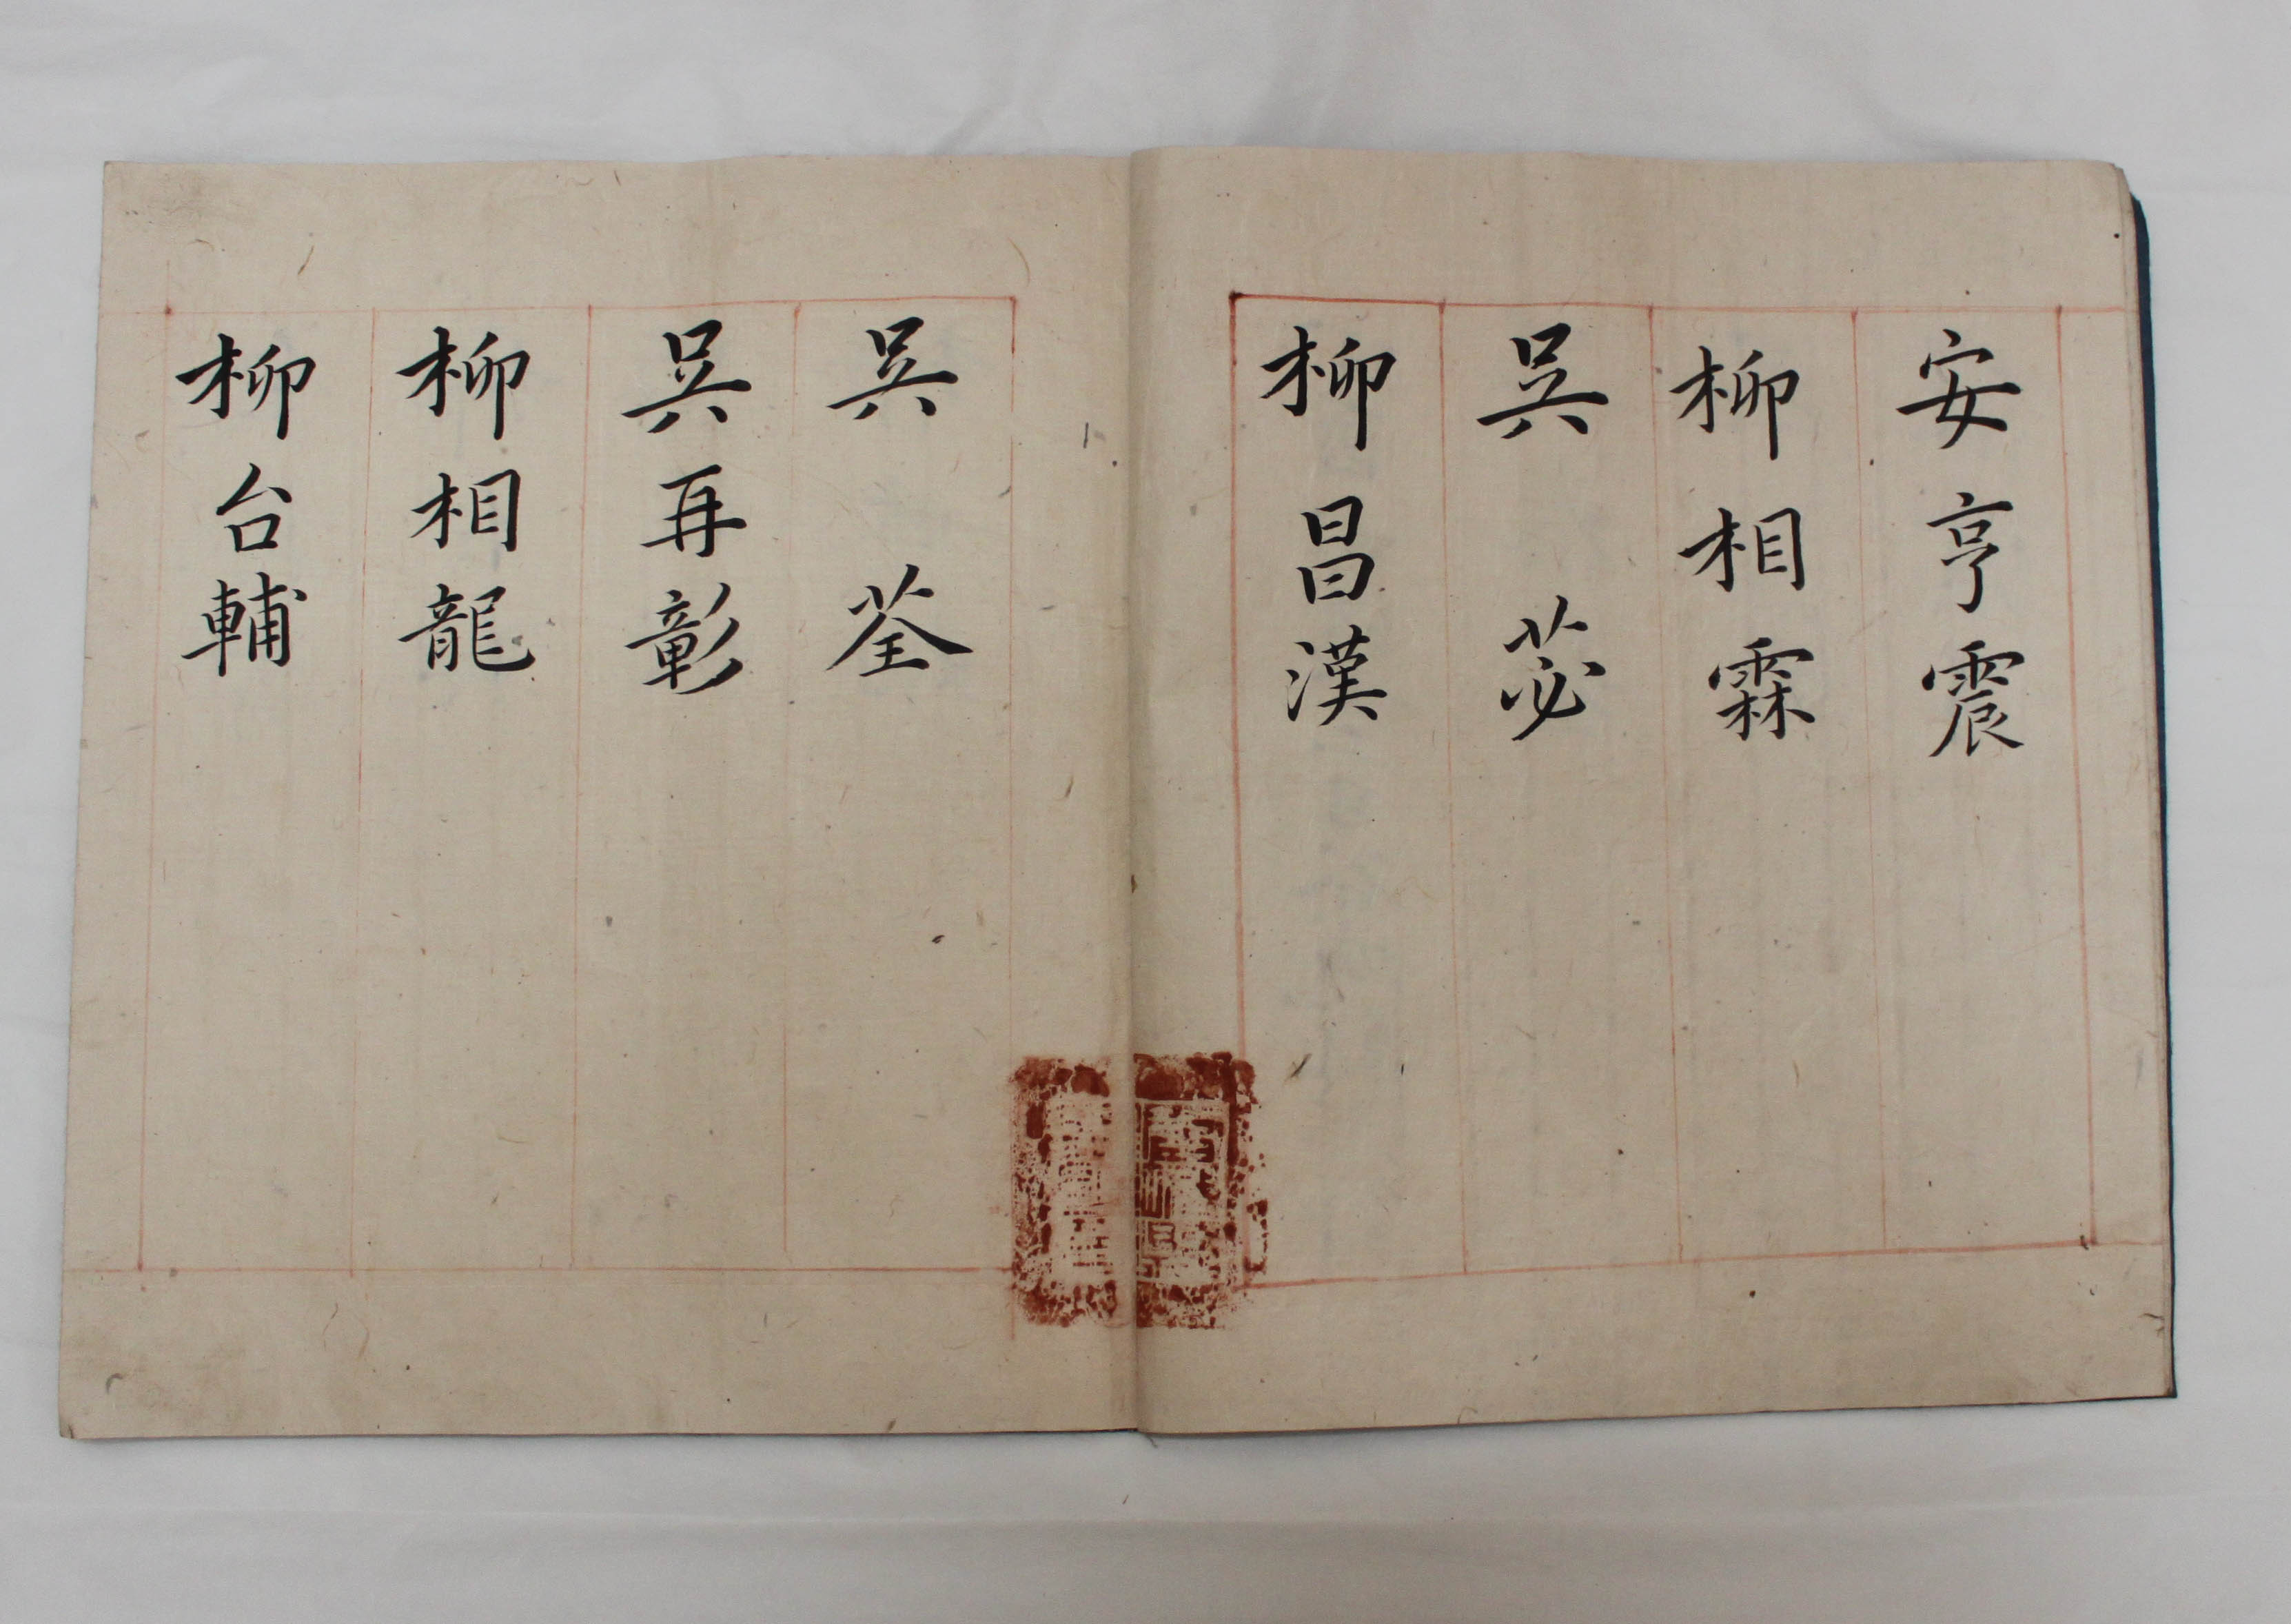 安亨震
柳相霖
吳苾
柳昌漢
吳荃
吳再彰
柳相龍
柳台輔